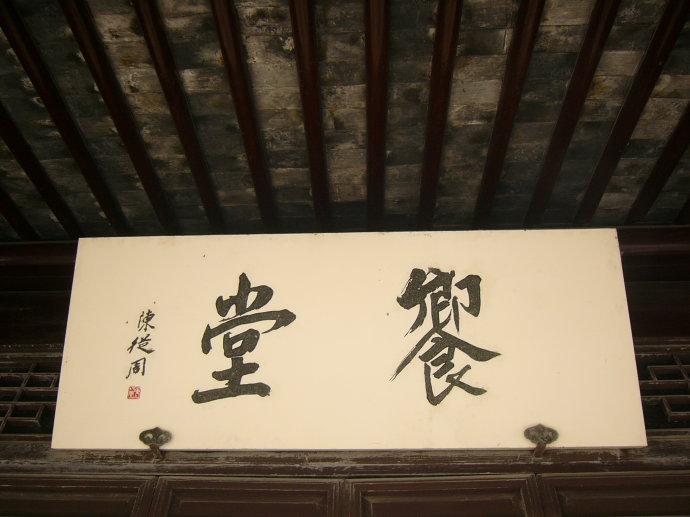 饗堂
陳從周